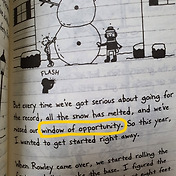 FLASH
But every time we've got serious about going for
the record, all the snow has melted, and we've
missed our window of opportunity. So this year,
I wanted to get started right away.
When Rowley came over, we started rolling the
the base. I figured the
might feet